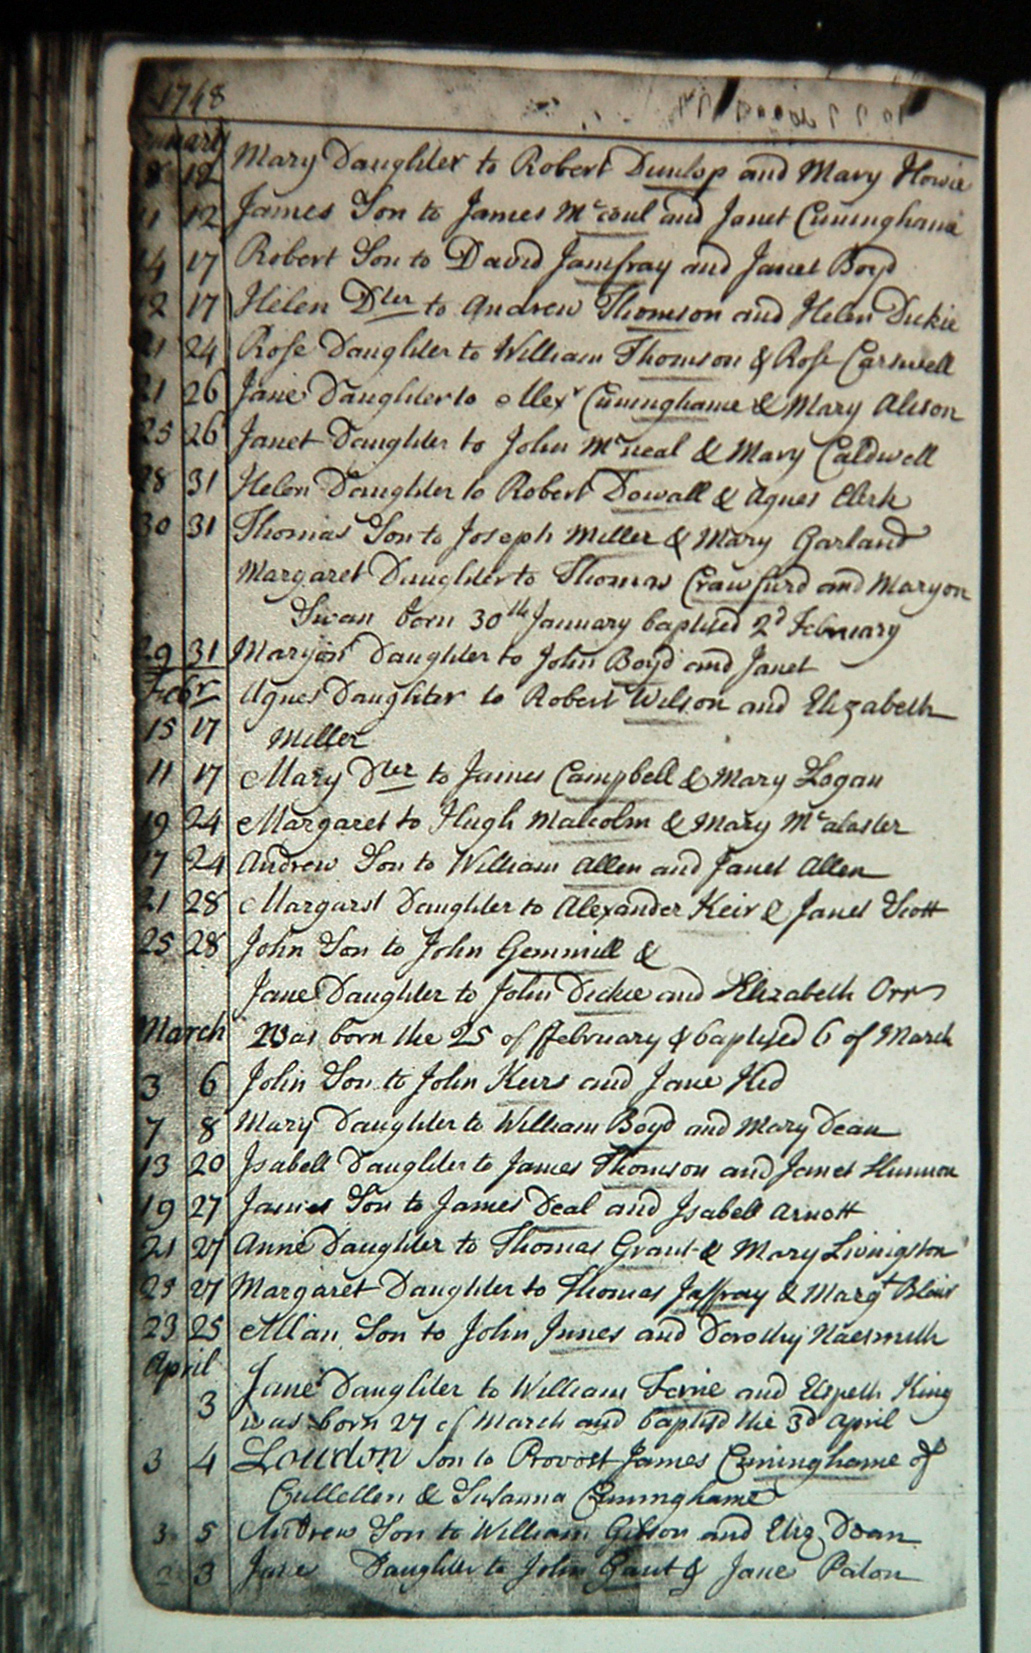 1748
January
8 12 Mary Daughter to Robert Dunlop and Mary Howie
11 12 James Son to James Mccoul and Janet Cuninghame
14 17 Robert Son to David Jamfray and Janet Boyd
12 17 Helen Dter to Andrew Thomson and Helen Dickie
21 24 Rose Daughter to William Thomson & Rose Carswell
21 26 Jane Daughter to Alexr Cuninghame & Mary Alison
25 26 Janet Daughter to John Mcneal & Mary Caldwell
28 31 Helen Daughter to Robert Dowall & Agnes Clerk
30 31 Thomas Son to Joseph Miller & Mary Garland
Margaret Daughter to Thomas Crawfurd and Maryon
Swan born 30th January baptised 2d February
29 31 Maryon Daughter to John Boyd and Janet
Febr Agnes Daughter to Robert Wilson and Elizabeth
15 17 Miller
11 17 Mary Dter to James Campbell & Mary Logan
19 24 Margaret to Hugh Malcolm & Mary Mcalaster
17 24 Andrew Son to William Allen and Janet Allen
21 28 Margaret Daughter to Alexander Keir & Janet Scott
25 28 John Son to John Gemmill &
Jane Daughter to John Dickie and Elizabeth Orr
March Was born the 25 of ffebruary & baptised 6 of March
3 6 John Son to John Keirs and Jane Kid
7 8 Mary Daughter to William Boyd and Mary Dean
13 20 Isabell Daughter to James Thomson and Janet
19 27 James Son to James Deal and Isabell Arnott
21 27 Anne Daughter to Thomas Grant & Mary Livingston
25 27 Margaret Daughter to Thomas Jaffray & Margt Blair
23 25 Allan Son to John Innes and Dorothy Naesmith
April
3 Jane Daughter to William Fernie and Elspeth King
was born 27 of March and baptisd the 3d April
3 4 Loudon Son to Provost James Cuninghame of
Cullellen & Susanna Cuninghame
3 5 Andrew Son to William Gibson and Eliz Dean
2 3 Jane Daughter to John Gaut & Jane Paton